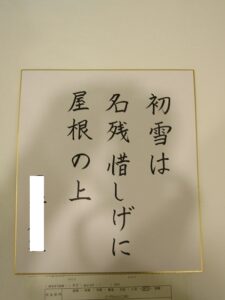 初雪は
名残惜しげに
屋根の上